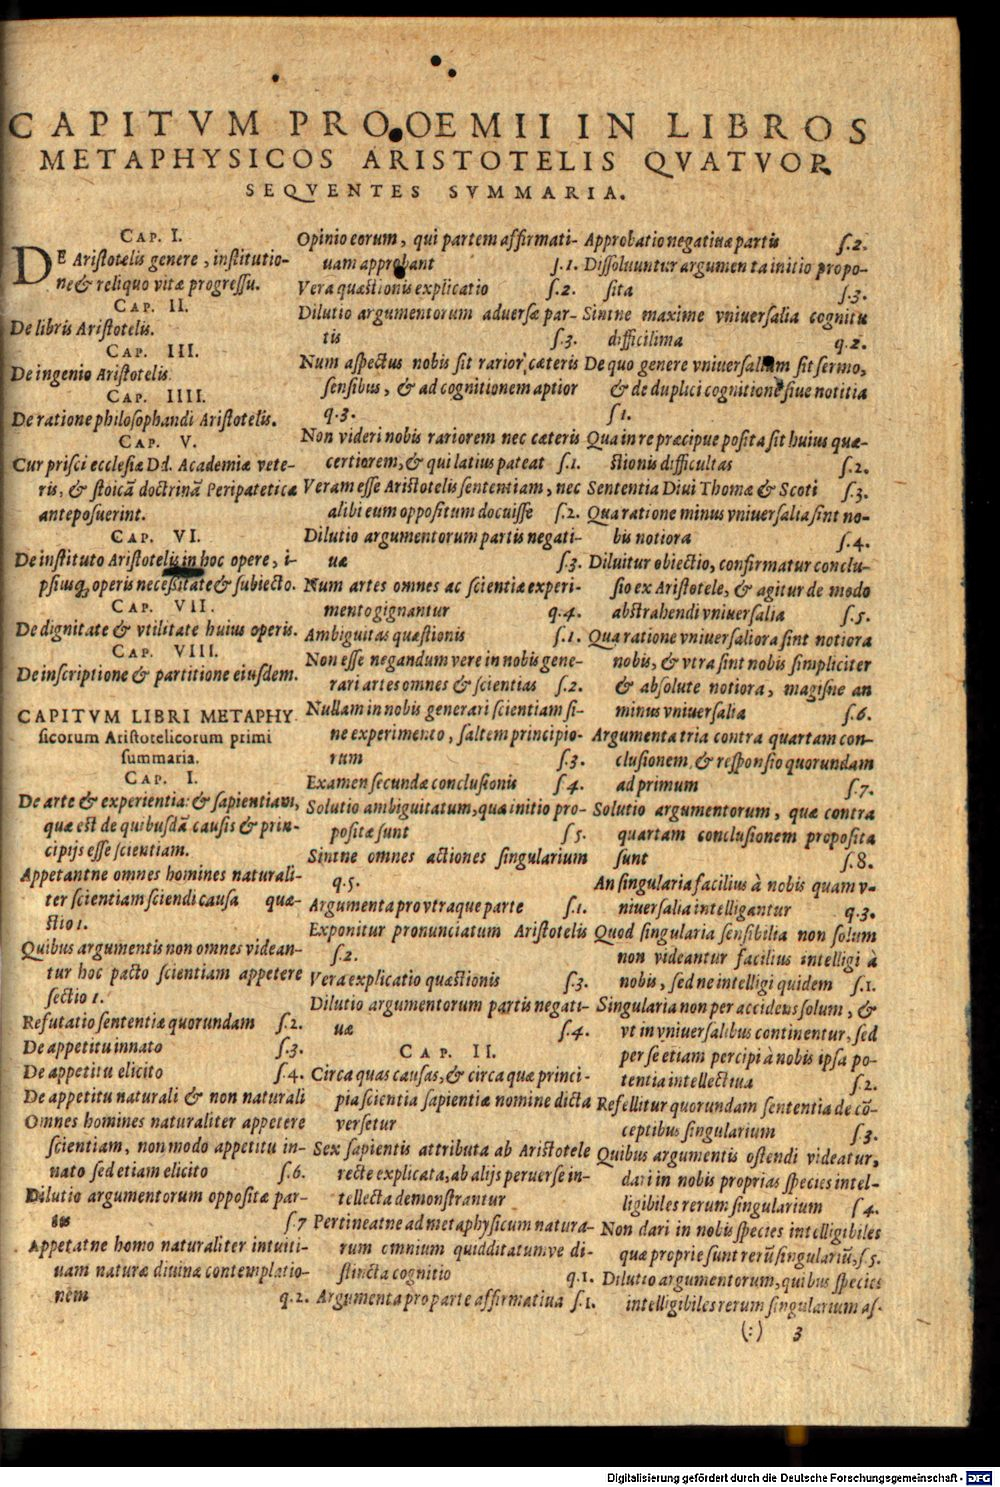 CAPITVM PROOEMII IN LIBROS
METAPHYSICOS ARISTOTELIS QVATVOR
SEQVENTES SVMMARIA.
CAP. I.
DE Aristotelis genere, institutio-
ne & reliquo vitæ progressu.
CAP. II.
De libris Aristotelis.
CAP. III.
De ingenio Aristotelis.
CAP. IIII.
De ratione philosophandi Aristotelis.
CAP. V.
Cur prisci ecclesiæ Dd. Academiæ vete-
ris, & stoicā doctrinā Peripatetica
anteposuerint.
CAP. VI.
De instituto Aristotelis in hoc opere, i-
psiusq; operis necessitate & subiecto.
CAP. VII.
De dignitate & vtilitate huius operis.
CAP. VIII.
De inscriptione & partitione eiusdem.
CAPITVM LIBRI METAPHY
sicorum Aristotelicorum primi
summaria.
CAP. I.
De arte & experientia: & sapientiam,
quæ est de quibusdā causis & prin-
cipijs esse scientiam.
Appetantne omnes homines naturali-
ter scientiam sciendi causa quæ-
stio 1.
Quibus argumentis non omnes videan-
tur hoc pacto scientiam appetere
sectio 1.
Refutatio sententiæ quorundam s.2.
De appetitu innato s.3.
De appetitu elicito s.4.
De appetitu naturali & non naturali
Omnes homines naturaliter appetere
scientiam, non modo appetitu in-
nato sed etiam elicito s.6.
Dilutio argumentorum oppositæ par-
tis s.7
Appetatne homo naturaliter intuiti-
uam naturæ diuinæ contemplatio-
nem q.2.
Opinio eorum, qui partem affirmati-
uam approbant s.1.
Vera quæstionis explicatio s.2.
Dilutio argumentorum aduersæ par-
tis s.3.
Num aspectus nobis sit rarior cæteris
sensibus, & ad cognitionem aptior
q.3.
Non videri nobis rariorem nec cæteris
certiorem, & qui latius pateat s.1.
Veram esse Aristotelis sententiam, nec
alibi eum oppositum docuisse s.2.
Dilutio argumentorum partis negati-
uæ s.3.
Num artes omnes ac scientiæ experi-
mento gignantur q.4.
Ambiguitas quæstionis s.1.
Non esse negandum vere in nobis gene-
rari artes omnes & scientias s.2.
Nullam in nobis generari scientiam si-
ne experimento, saltem principio-
rum s.3.
Examen secundæ conclusionis s.4.
Solutio ambiguitatum, quæ initio pro-
positæ sunt s5.
Sintne omnes actiones singularium
q.5.
Argumenta pro vtraque parte s.1.
Exponitur pronunciatum Aristotelis
s.2.
Vera explicatio quæstionis s.3.
Dilutio argumentorum partis negati-
uæ s.4.
CAP. II.
Circa quas causas, & circa quæ princi-
pia scientia sapientiæ nomine dicta
versetur
Sex sapientis attributa ab Aristotele
recte explicata, ab alijs peruerse in-
tellecta demonstrantur
Pertineatne ad metaphysicum natura-
rum omnium quidditatumve di-
stincta cognitio q.1.
Argumenta pro parte affirmatiua s.1.
Approbatio negatiuæ partis s.2.
Dissoluuntur argumenta initio propo-
sita s.3.
Sintne maxime vniuersalia cognitu
difficilima q.2.
De quo genere vniuersalium sit sermo,
& de duplici cognitione siue notitia
s1.
Qua in re præcipue posita sit huius quæ-
stionis difficultas s.2.
Sententia Diui Thomæ & Scoti s.3.
Qua ratione minus vniuersalia sint no-
bis notiora s.4.
Diluitur obiectio, confirmatur conclu-
sio ex Aristotele, & agitur de modo
abstrahendi vniuersalia s.5.
Qua ratione vniuersaliora sint notiora
nobis, & vtra sint nobis simpliciter
& absolute notiora, magisne an
minus vniuersalia s.6.
Argumenta tria contra quartam con-
clusionem, & responsio quorundam
ad primum s.7.
Solutio argumentorum, quæ contra
quartam conclusionem proposita
sunt s.8.
An singularia facilius à nobis quam v-
niuersalia intelligantur q.3.
Quod singularia sensibilia non solum
non videantur facilius intelligi à
nobis, sed ne intelligi quidem s.1.
Singularia non per accidens solum, &
vt in vniuersalibus continentur, sed
per se etiam percipi à nobis ipsa po-
tentia intellectiua s.2.
Refellitur quorundam sententia de cō-
ceptibus singularium s3.
Quibus argumentis ostendi videatur,
dari in nobis proprias species intel-
ligibiles rerum singularium s4.
Non dari in nobis species intelligibiles
quæ proprie sunt rerū singulariū, s.5.
Dilutio argumentorum, quibus species
intelligibiles rerum singularium as-
(:) 3
Digitalisierung gefördert durch die Deutsche Forschungsgemeinschaft - DFG